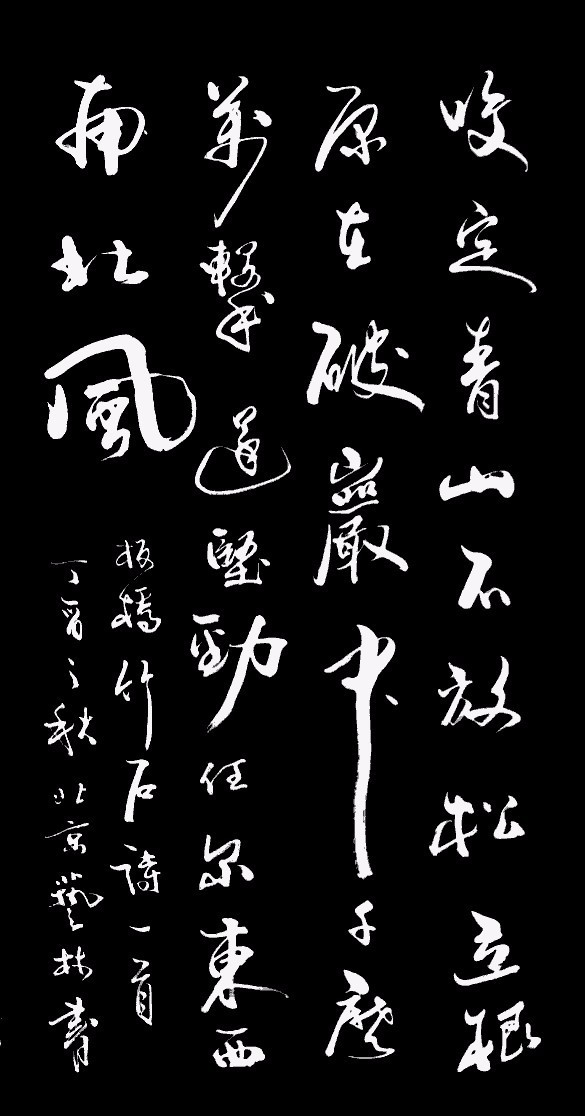 咬定青山不放松立根
原在破巖中千磨
萬擊還堅勁任尔東西
南北風
板橋竹石詩一首
丁酉之秋北京藝林書